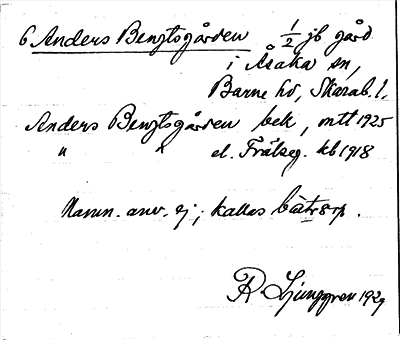 6 Anders Bengtsgården 1/2 jb gård
i Åsaka sn,
Barne hd, Skarab. l.
Anders Bengtsgården bek, mtl 1925
" " el. Frälseg. kb 1918
Namn. anv. ej; kallas
R. Ljunggren 1927